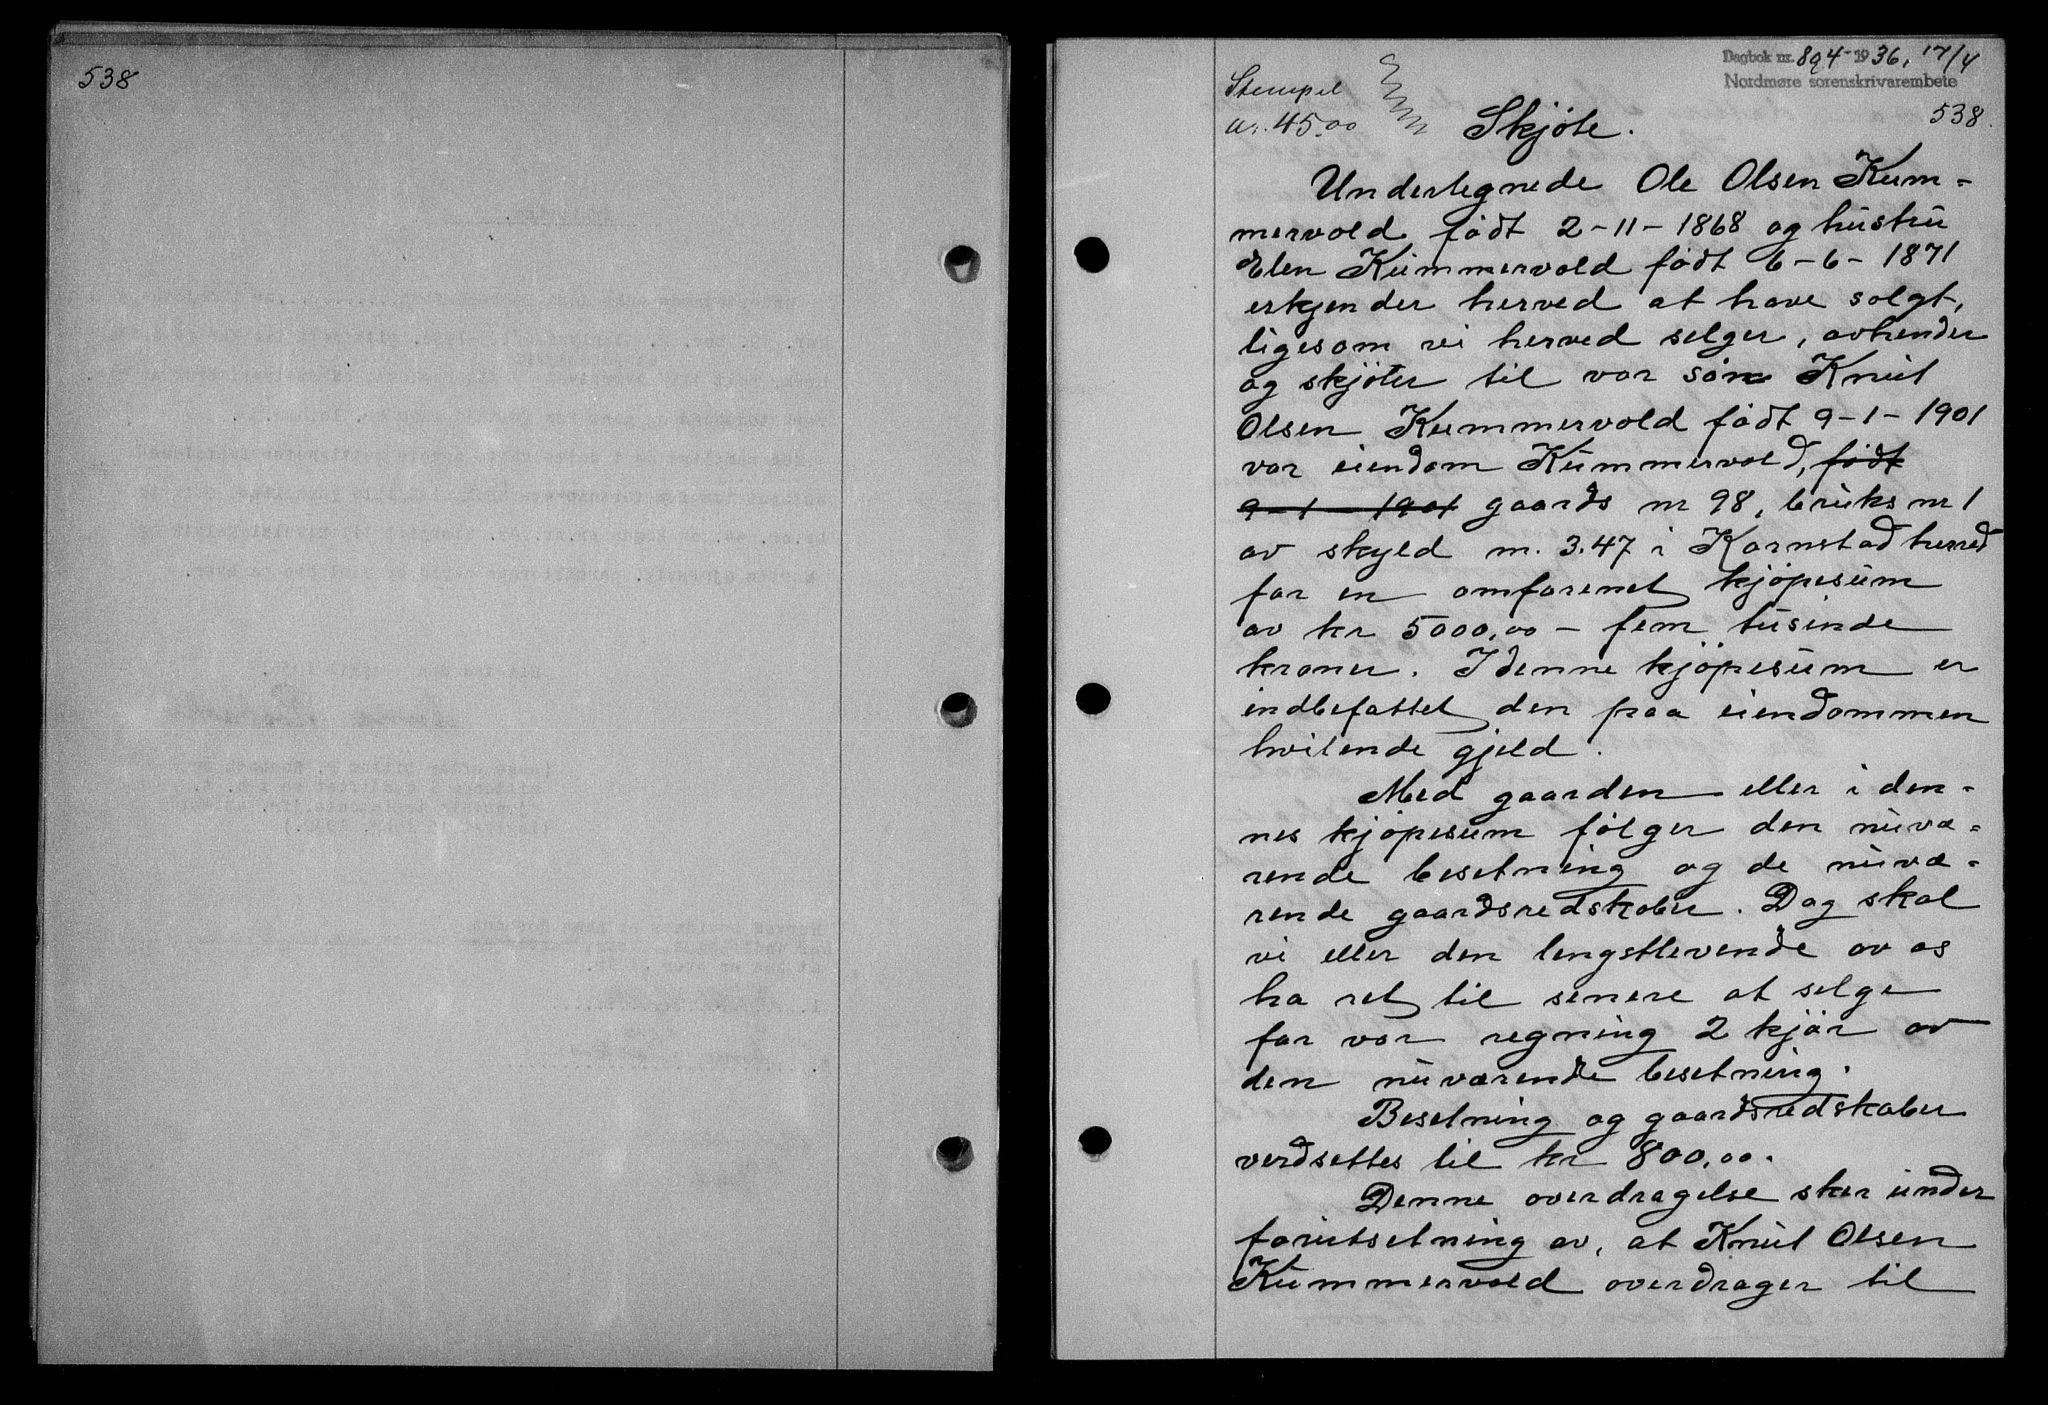 538
Dagbok nr. 894-1936, 17/4
Nordmøre sorenskrivarembete
538
Stempel
kr. 45.00
Skjöte.
Undertegnede Ole Olsen Kum-
mervold födt 2-11-1868 og hustru
Elen Kummervold födt 6-6-1871
erkjender herved at have solgt,
ligesom vi herved selger, avhender
og skjöter til vor sön Knut
Olsen Kummervold födt 9-1-1901
vor eiendom Kummervold, födt
9-1-1901 gaards nr 98, bruks nr 1
av skyld m. 3.47 i Kornstad herred
for en omforenet kjöpesum
av kr 5000,00 - fem tusinde
kroner. I denne kjöpesum er
indbefattet den paa eiendommen
hvilende gjeld.
Med gaarden eller i den-
nes kjöpesum fölger den nuvæ-
rende besetning og de nuvæ-
rende gaardsredskaber. Dog skal
vi eller den lengstlevende av os
ha ret til senere at selge
for vor regning 2 kjör av
den nuværende besetning.
Besetning og gaardsredskaber
verdsettes til kr 800,00.
Denne overdragelse sker under
forutsetning av, at Knut Olsen
Kummervold overdrager til